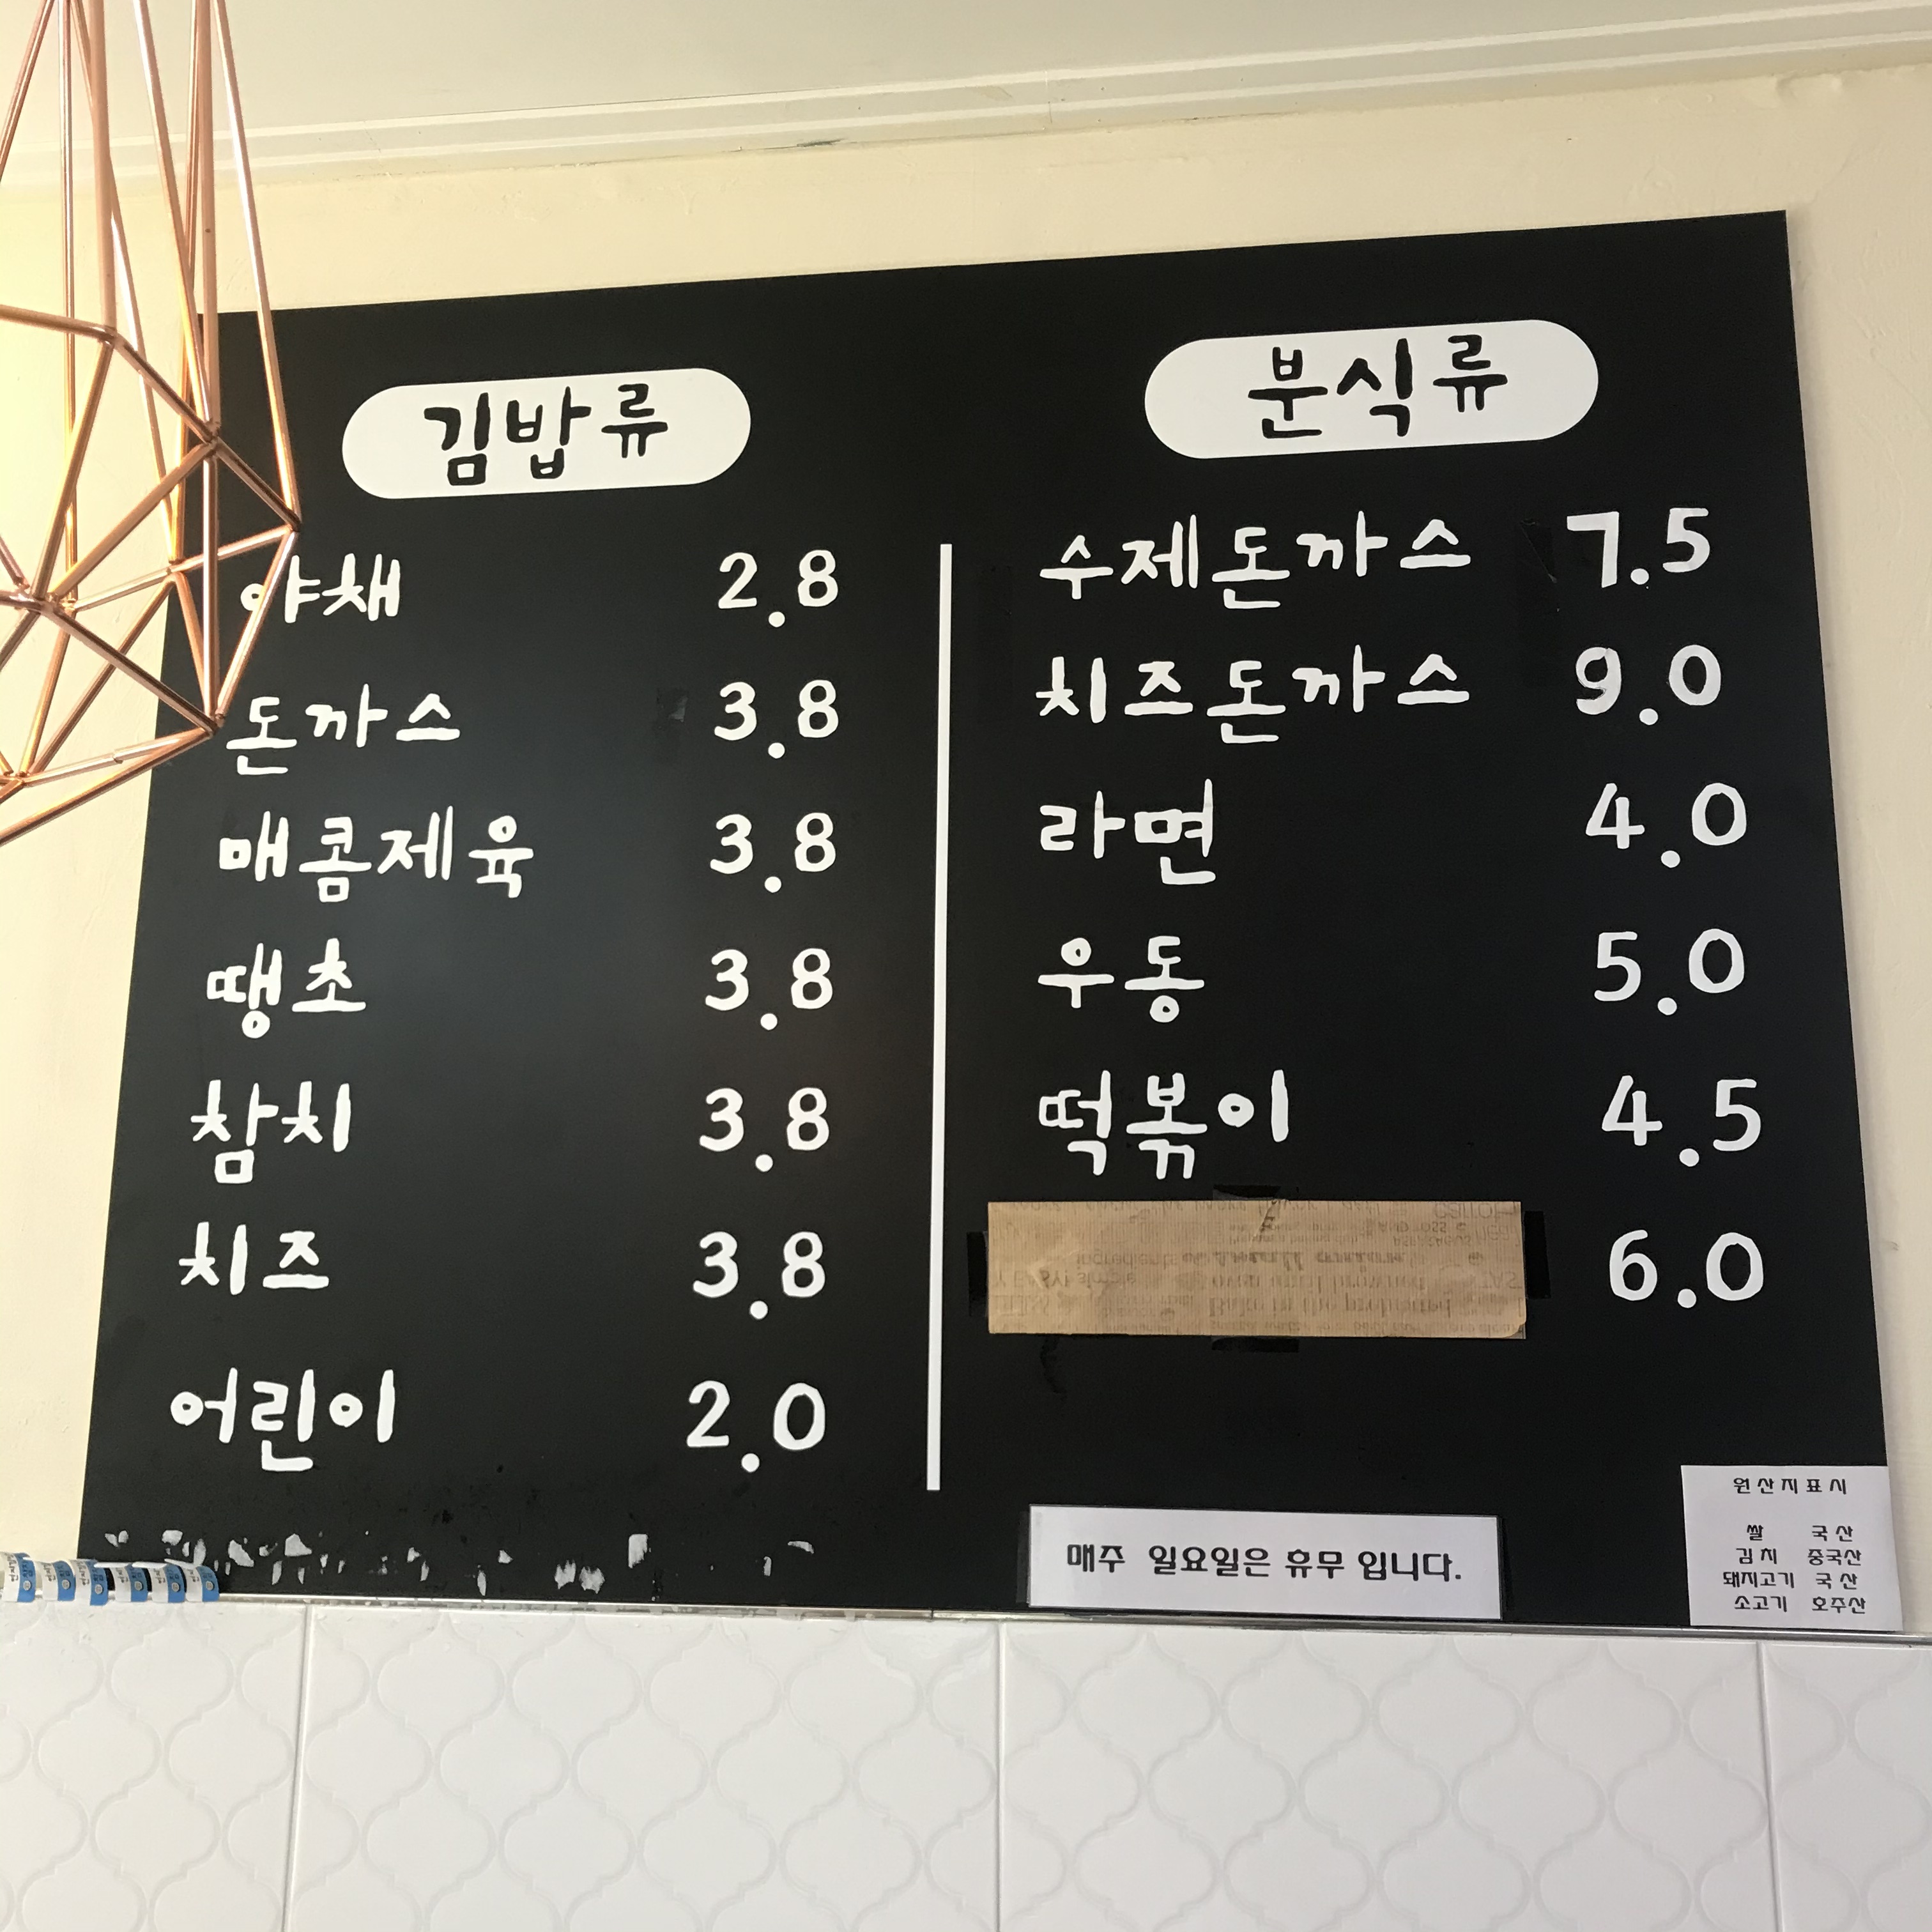 김밥류
야채 2.8
돈까스 3.8
매콤제육 3.8
땡초 3.8
참치 3.8
치즈 3.8
어린이 2.0
분식류
수제돈까스 7.5
치즈돈까스 9.0
라면 4.0
우동 5.0
떡볶이 4.5
6.0
매주 일요일은 휴무 입니다.
원산지표시
쌀 국산
김치 중국산
돼지고기 국산
소고기 호주산